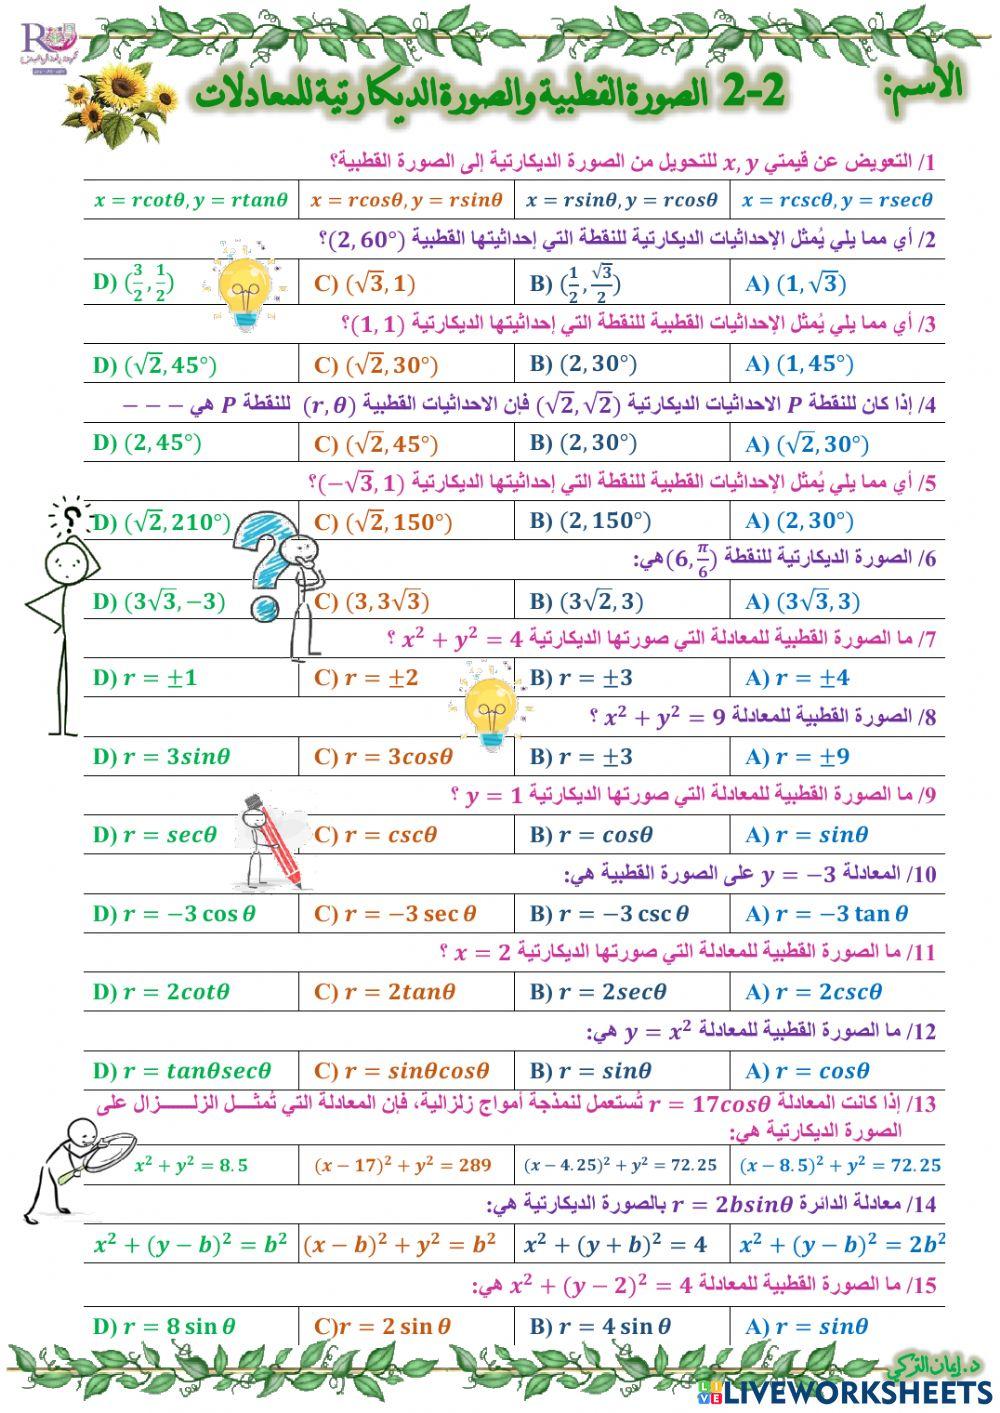 الاسم:
2-2 الصورة القطبية والصورة الديكارتية للمعادلات
1/ التعويض عن قيمتي x, y للتحويل من الصورة الديكارتية إلى الصورة القطبية؟
x = rcscθ, y = rsecθ
x = rsinθ, y = rcosθ
x = rcosθ, y = rsinθ
x = rcotθ, y = rtanθ
2/ أي مما يلي يُمثل الإحداثيات الديكارتية للنقطة التي إحداثيتها القطبية (2, 60°)؟
A) (1, √3)
B) (1/2, √3/2)
C) (√3, 1)
D) (3/2, 1/2)
3/ أي مما يلي يُمثل الإحداثيات القطبية للنقطة التي إحداثيتها الديكارتية (1, 1)؟
A) (1, 45°)
B) (2, 30°)
C) (√2, 30°)
D) (√2, 45°)
4/ إذا كان للنقطة P الاحداثيات الديكارتية (√2, √2) فإن الاحداثيات القطبية (r, θ) للنقطة P هي – – –
A) (√2, 30°)
B) (2, 30°)
C) (√2, 45°)
D) (2, 45°)
5/ أي مما يلي يُمثل الإحداثيات القطبية للنقطة التي إحداثيتها الديكارتية (−√3, 1)؟
A) (2, 30°)
B) (2, 150°)
C) (√2, 150°)
D) (√2, 210°)
6/ الصورة الديكارتية للنقطة (6, π/6) هي:
A) (3√3, 3)
B) (3√2, 3)
C) (3, 3√3)
D) (3√3, −3)
7/ ما الصورة القطبية للمعادلة التي صورتها الديكارتية x² + y² = 4 ؟
A) r = ±4
B) r = ±3
C) r = ±2
D) r = ±1
8/ الصورة القطبية للمعادلة x² + y² = 9 ؟
A) r = ±9
B) r = ±3
C) r = 3cosθ
D) r = 3sinθ
9/ ما الصورة القطبية للمعادلة التي صورتها الديكارتية y = 1 ؟
A) r = sinθ
B) r = cosθ
C) r = cscθ
D) r = secθ
10/ المعادلة y = −3 على الصورة القطبية هي:
A) r = −3 tan θ
B) r = −3 csc θ
C) r = −3 sec θ
D) r = −3 cos θ
11/ ما الصورة القطبية للمعادلة التي صورتها الديكارتية x = 2 ؟
A) r = 2cscθ
B) r = 2secθ
C) r = 2tanθ
D) r = 2cotθ
12/ ما الصورة القطبية للمعادلة y = x² هي:
A) r = cosθ
B) r = sinθ
C) r = sinθcosθ
D) r = tanθsecθ
13/ إذا كانت المعادلة r = 17cosθ تُستعمل لنمذجة أمواج زلزالية، فإن المعادلة التي تُمثـــل الزلـــــزال على
الصورة الديكارتية هي:
(x − 8.5)² + y² = 72.25
(x − 4.25)² + y² = 72.25
(x − 17)² + y² = 289
x² + y² = 8.5
14/ معادلة الدائرة r = 2bsinθ بالصورة الديكارتية هي:
x² + (y − b)² = 2b²
x² + (y + b)² = 4
(x − b)² + y² = b²
x² + (y − b)² = b²
15/ ما الصورة القطبية للمعادلة x² + (y − 2)² = 4 هي:
A) r = sinθ
B) r = 4 sin θ
C)r = 2 sin θ
D) r = 8 sin θ
د. إيمان التركي
LIVEWORKSHEETS